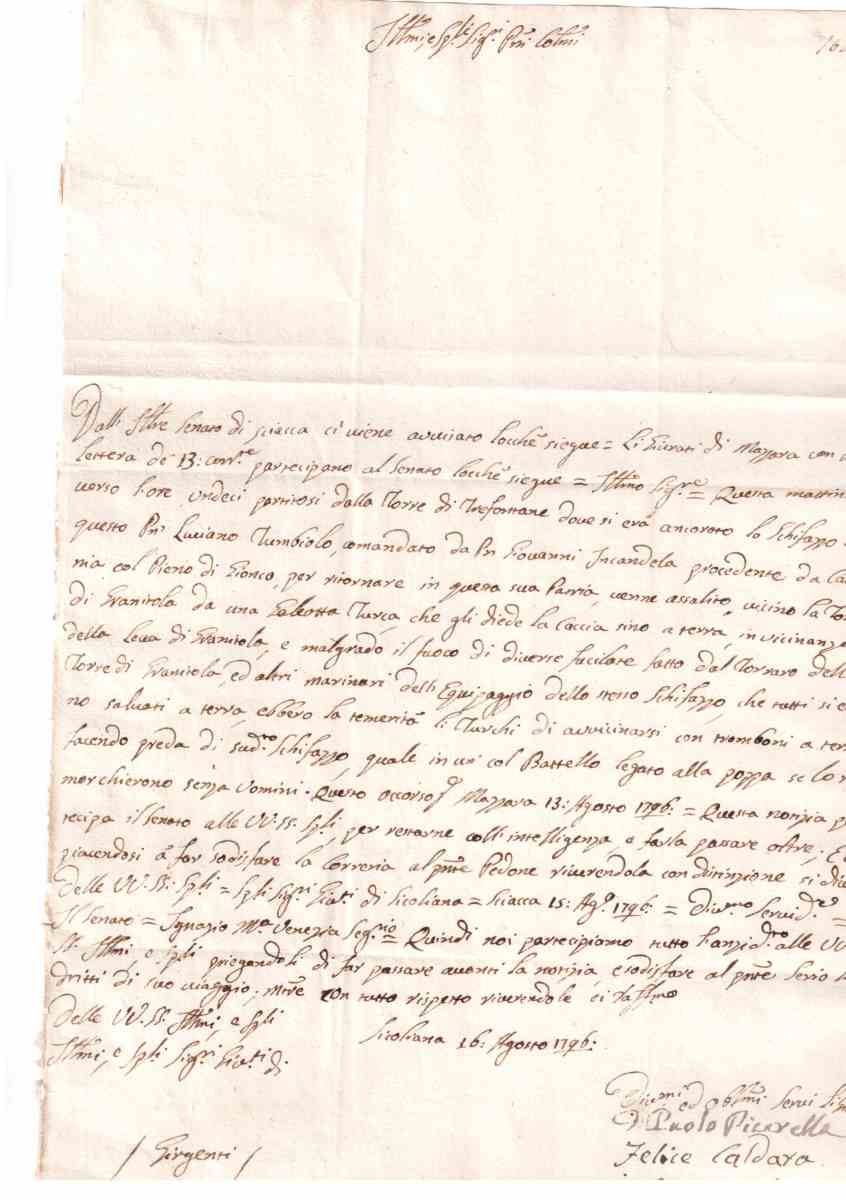 Ill.mi, e Sp.li Sig.ri P.rni Col.mi
Dall' Ill.re Senato di Sciacca ci viene avvisato locche siegue = Li Giurati di Mazzara con
lettera de 13: corr.te partecipano al Senato locche siegue = Ill.mo Sig.re = Questa mattin
verso l'ore undeci partitosi dalla Torre di Trefontane dove si era ancorato lo Schifazzo
questo Pn. Luciano Tumbiolo, comandato da Pn. Giovanni Incandela procedente da Ca
nia col Pieno di Gionco, per ritornare in questa sua Patria, venne assalito, vicino la To
di Granitola da una Galeotta Turca, che gli diede la Caccia sino a terra, in vicinanza
della Leva di Granitola, e malgrado il fuoco di diverse fucilate fatto dal Torraro dell
Torre di Granitola, ed altri marinari dell' Equipaggio dello stesso Schifazzo, che tutti si e
no salvati a terra, ebbero la temerità li Turchi di avvicinarsi con tromboni a ter
facendo preda di sud.to Schifazzo, quale in un' col Battello legato alla poppa se lo r
morchierono senza Uomini. Questo occorso Mazzara 13: Agosto 1796: = Questa notizia p
tecipa il Senato alle VV. SS. Sp.li, per restarne coll' intelligenza, e farla passare oltre;
piacendosi a far sodisfare la Correria al p.nte Pedone riverendola con distinzione si di
Delle VV. SS. Sp.li = Sp.li Sig.ri Giu.ti di Sicoliana = Sciacca 15: Ag.o 1796: = Div.mo Servid.re =
Il Senato = Ignazio M.a Venezia Seg.rio = Quindi noi partecipiamo tutto l'anzid.to alle VV
SS. Ill.mi e Sp.li priegandoli di far passare avanti la notizia, e sodisfare al p.nte Serio
dritti di suo viaggio; m.tre con tutto rispetto riverendole ci raff.mo
Delle VV. SS. Ill.mi, e Sp.li
Sicoliana 16: Agosto 1796:
Ill.mi, e Sp.li Sig.ri Giu.ti di
Div.mi ed Obb.mi Servi
D. Paolo Picarella
/ Girgenti /
Felice Caldara